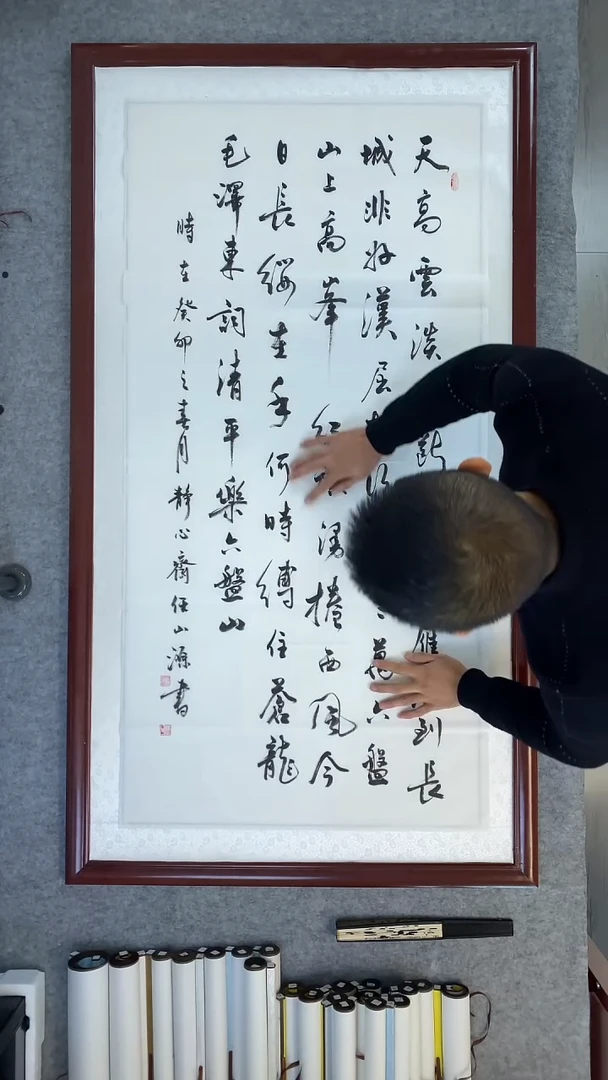 天高雲淡斷雁到長
城非好漢屈萬六盤
山上高峯紅漫捲西風今
日長纓在手何時縛住蒼龍
毛澤東詞清平樂六盤山
時在癸卯之春月靜心齋任山源書